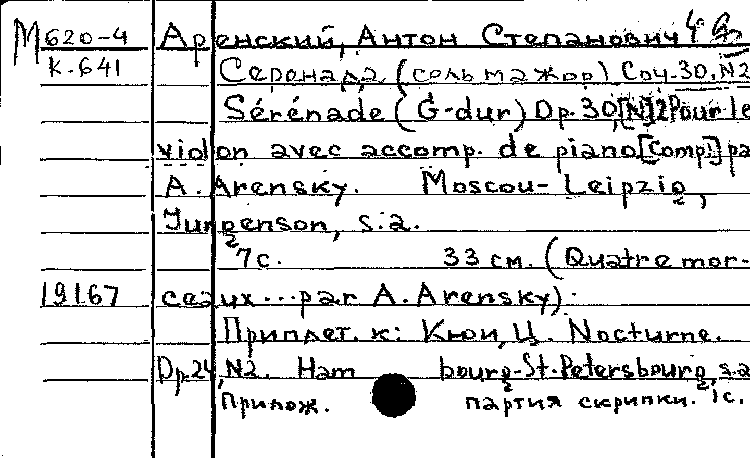 M 620-4 Аренский, Антон Степанович
К.641 Серенада (соль мажор) Соч.30, N2
Sérénade (G-dur) Op.30,[N]2 Pour le
violon avec accomp. de piano [Comp.] pa
A. Arensky. Moscou-Leipzig,
Jurgenson, s.a.
7 с. 33 см. (Quatre mor-
19167 ceaux...par A. Arensky).
Приплет. к: Кюи, Ц. Nocturne.
Op.24, N2. Hambourg-St.-Petersbourg, s.a
Прилож. партия скрипки. 1с.